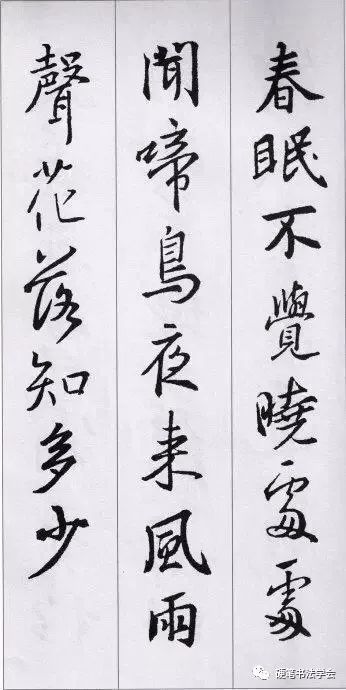 春眠不覺曉處處
聞啼鳥夜来風雨
聲花落知多少
硬笔书法学会